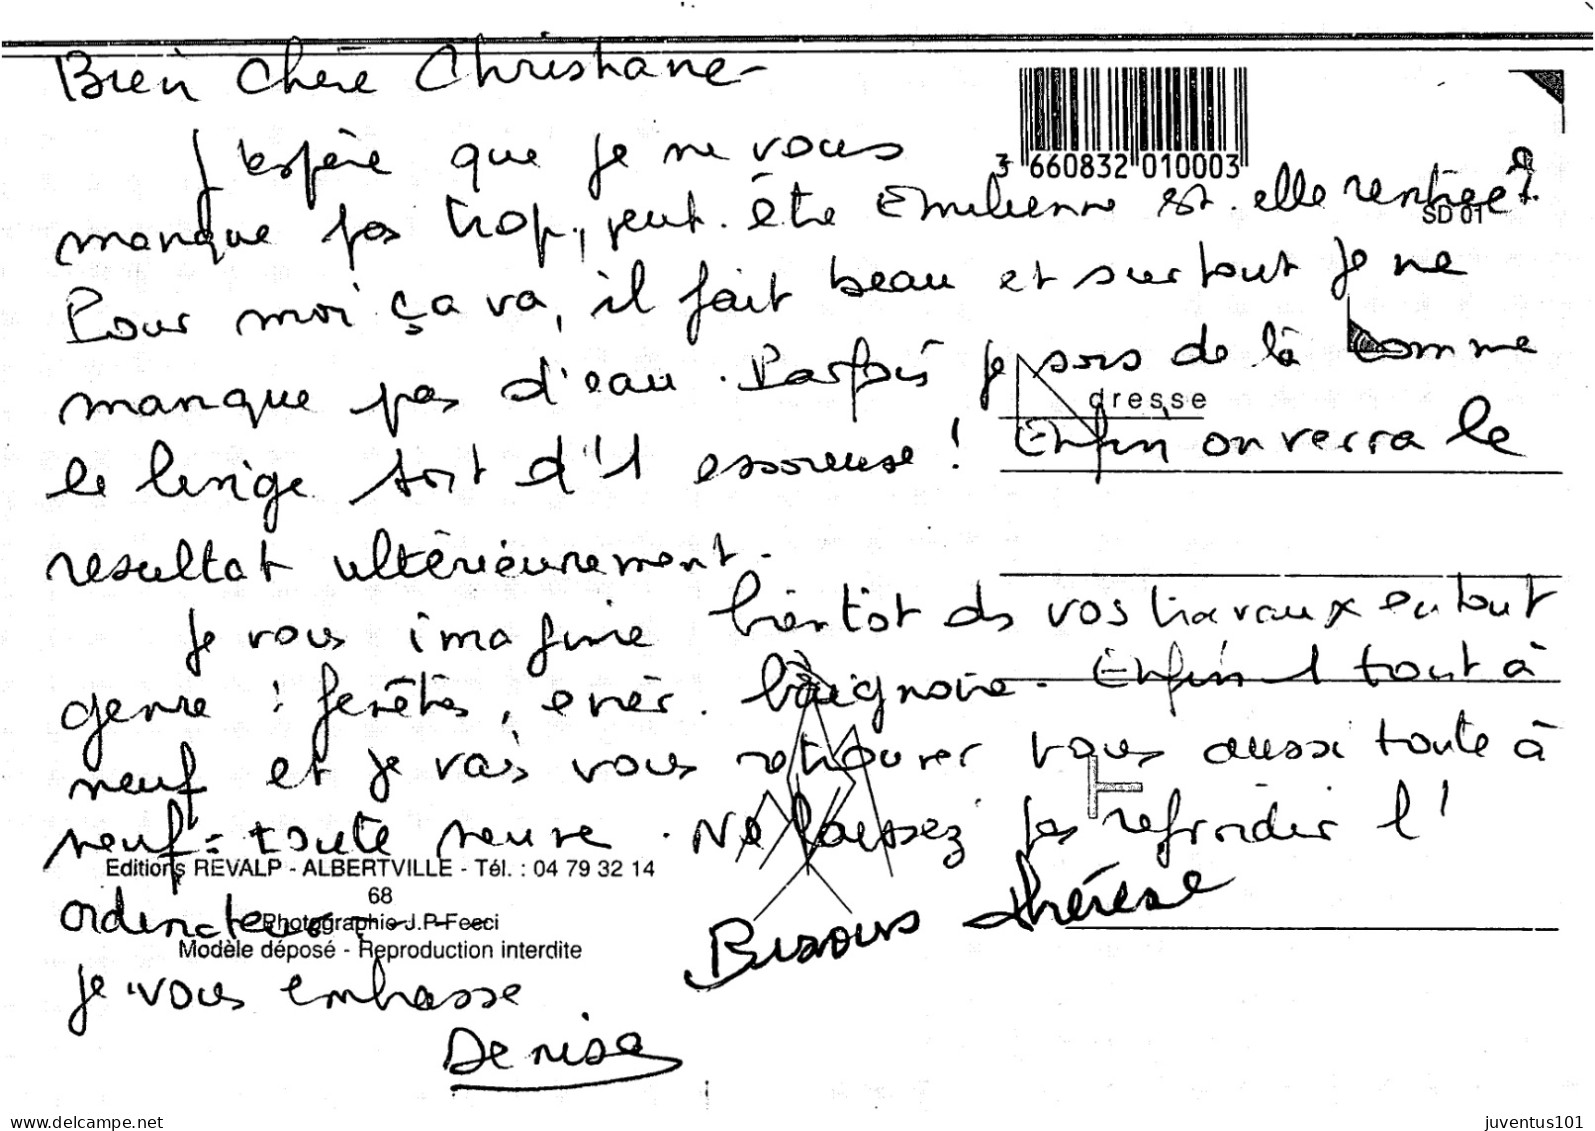 Bien Chère Christiane -
J'espère que je ne vous
3 660832 010003
manque pas trop, peut-être Emilienne est-elle rentrée ?
SD 01
Pour moi ça va, il fait beau et surtout je ne
manque pas d'eau. Parfois je sors de là comme
dresse
le linge sort d'1 essoreuse ! Enfin on verra le
resultat ultérieurement.
Je vous imagine bientôt ds vos travaux en tout
genre : fenêtres, evier. baignoire. Enfin 1 tout à
neuf et je vais vous retrouver vous aussi toute à
neuf = toute neuve. Ne laissez pas refroidir l'
Editions REVALP - ALBERTVILLE - Tél. : 04 79 32 14
68
ordinateur
Photographie J.P. Feeci
Modèle déposé - Reproduction interdite
Bisous Thérèse
Je vous embrasse
Denise
www.delcampe.net
juventus101